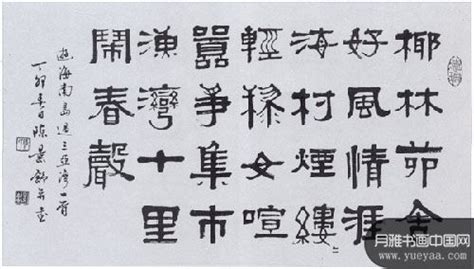 椰林茆舍
好風情涯
海村煙縷二
輕女喧
囂爭集市
漁灣十里
鬧春聲
遊海南島過三亞灣一首
丁卯春日陳景舒並書
月雅书画中国网
www.yueyaa.com